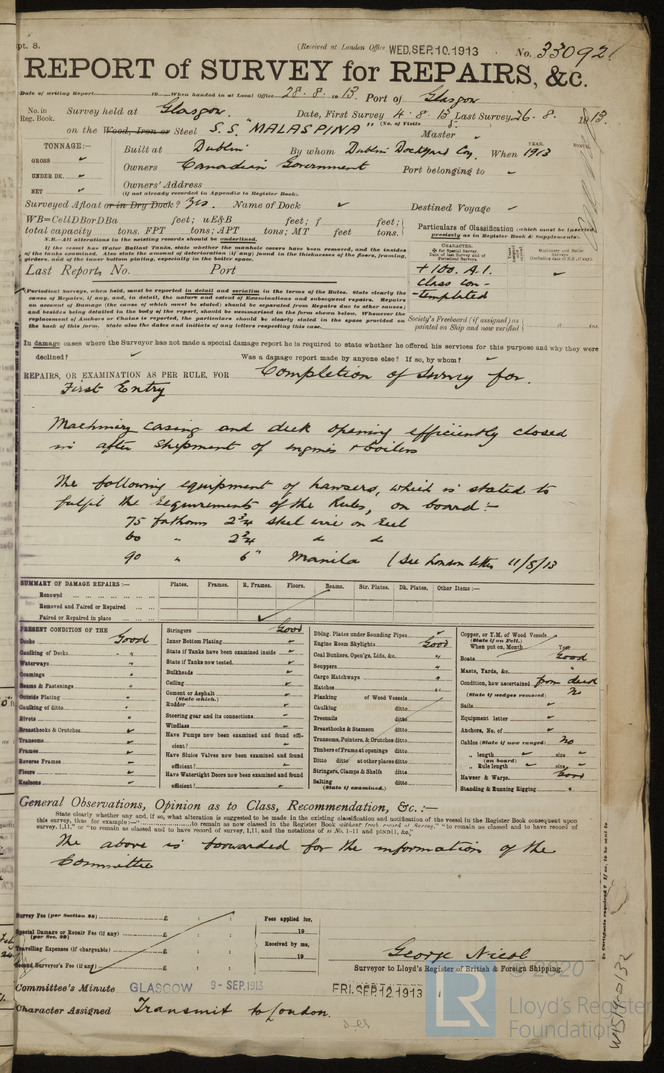 pt. 8.
(Received at London Office WED.SEP.10.1913
No. 33092
REPORT of SURVEY for REPAIRS, &c.
Date of writing Report 19 When handed in at Local Office 28.8.1913 Port of Glasgow
No. in Reg. Book.
Survey held at Glasgow. Date, First Survey 4.8.13 Last Survey 26.8.1913.
(No. of Visits
on the Wood, Iron or Steel S.S. "MALASPINA" Master
TONNAGE:—
GROSS
UNDER DK.
NET
Built at Dublin By whom Dublin Dockyard Coy. When 1913
YEAR. MONTH.
Owners Canadian Government Port belonging to
Owners' Address
(if not already recorded in Appendix to Register Book.)
Surveyed Afloat or in Dry Dock? Yes. Name of Dock Destined Voyage
WB=CellDBorDBa feet; uE&B feet; f feet;
total capacity tons. FPT tons; APT tons; MT feet tons.
N.B.—All alterations in the existing records should be underlined.
If the ship has Water Ballast Tanks, state whether the manhole covers have been removed, and the insides
of the tanks examined. Also state the amount of deterioration (if any) found in the thicknesses of the floors, framing,
girders, and of the inner bottom plating, especially in the boiler space.
Particulars of Classification (which must be inserted
precisely as in Register Book & Supplements.
CHARACTER.
+100. A.1.
Class con-
-templated
Last Report, No. Port
(Periodical Surveys, when held, must be reported in detail and seriatim in the terms of the Rules. State clearly the
cause of Repairs, if any, and, in detail, the nature and extent of Examinations and subsequent repairs. Repairs
on account of Damage (the cause of which must be stated) should be separated from Repairs due to other causes;
and besides being detailed in the body of the report, should be summarised in the form shown below. Whenever the
replacement of Anchors or Chains is reported, the particulars should be clearly stated in the space provided on
the back of this form. State also the dates and initials of any letters respecting this case.
Society's Freeboard (if assigned) as
painted on Ship and now verified
In damage cases where the Surveyor has not made a special damage report he is required to state whether he offered his services for this purpose and why they were
declined? Was a damage report made by anyone else? If so, by whom?
REPAIRS, OR EXAMINATION AS PER RULE, FOR Completion of Survey for
First Entry
Machinery casing and deck opening efficiently closed
in after shipment of engines & boilers
The following equipment of hawsers, which is stated to
fulfil the requirements of the Rules, on board:-
75 fathoms 2¾ steel wire on reel
60 " 2¾ do do
90 " 6" Manila (See London letter 11/8/13
SUMMARY OF DAMAGE REPAIRS:— Plates. Frames. R. Frames. Floors. Beams. Str. Plates. Dk. Plates. Other Items:—
Renewed
Removed and Faired or Repaired
Faired or Repaired in place
PRESENT CONDITION OF THE
Decks Good
Caulking of Decks "
Waterways "
Coamings "
Beams & Fastenings
Outside Plating
Caulking of ditto
Rivets
Breasthooks & Crutches
Transoms
Frames
Reverse Frames
Floors
Keelsons
Stringers Good
Inner Bottom Plating
State if Tanks have been examined inside
State if Tanks now tested
Bulkheads
Ceiling
Cement or Asphalt
(State which.)
Rudder
Steering gear and its connections
Windlass
Have Pumps now been examined and found effi-
cient?
Have Sluice Valves now been examined and found
efficient?
Have Watertight Doors now been examined and found
efficient?
Dbing. Plates under Sounding Pipes
Engine Room Skylights Good
Coal Bunkers, Open'gs, Lids, &c. "
Scuppers "
Cargo Hatchways "
Hatches
Planking of Wood Vessels
Caulking ditto
Treenails ditto
Breasthooks & Stemson ditto
Transoms, Pointers, & Crutches ditto
Timbers of Frame at openings ditto
Ditto ditto at other places ditto
Stringers, Clamps & Shelfs ditto
Salting ditto
(State if examined.)
Copper, or Y.M. of Wood Vessels
(State if on Felt.)
When put on, Month Year
Boats Good
Masts, Yards, &c. "
Condition, how ascertained from deck
(State if wedges removed) No
Sails
Equipment letter
Anchors, No. of
Cables (State if now ranged) No
" length size
(on board)
" Rule length size
Hawser & Warps Good
Standing & Running Rigging
General Observations, Opinion as to Class, Recommendation, &c.:—
State clearly whether any, and if so, what alteration is suggested to be made in the existing classification and notification of the vessel in the Register Book consequent upon
The above is forwarded for the information of the
Committee
Survey Fee (per Section 28) £ : :
Special Damage or Repair Fee (if any) £ : :
(per Sec. 28)
Travelling Expenses (if chargeable) £ : :
Second Surveyor's Fee (if any) £
Fees applied for,
19
Received by me,
19
George Nicol
Surveyor to Lloyd's Register of British & Foreign Shipping.
Committee's Minute GLASGOW 9-SEP.1913
FRI.SEP.12.1913
Character Assigned Transmit to London.
© 2020
LR
Lloyd's Register
Foundation